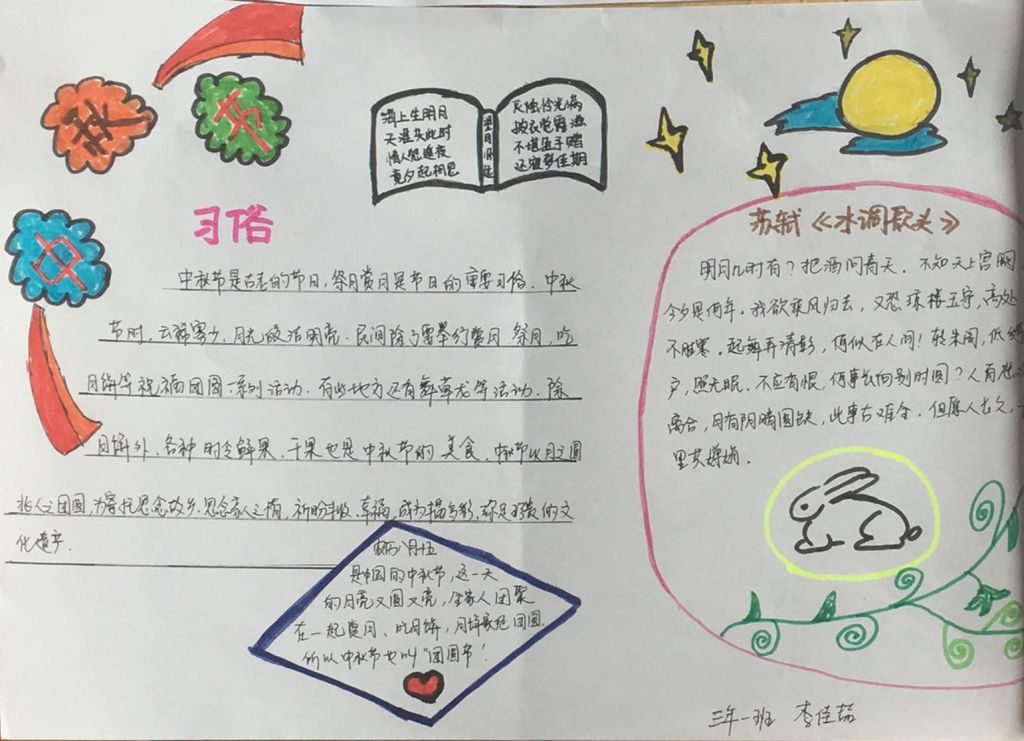 秋
节
中
海上生明月
天涯共此时
情人怨遥夜
竟夕起相思
望月怀远
灭烛怜光满
披衣觉露滋
不堪盈手赠
还寝梦佳期
习俗
中秋节是古老的节日,祭月赏月是节日的重要习俗。中秋
节时,云稀雾少,月光皎洁明亮。民间除了要举行赏月 祭月,吃
月饼等祝福团圆一系列活动。有些地方还有舞草龙等活动。除
月饼外,各种时令鲜果,干果也是中秋节的美食。中秋节以月之圆
兆人之团圆,为寄托思念故乡,思念亲人之情,祈盼丰收、幸福,成为
文
化遗产.
农历八月十五
是中国的中秋节,这一天
的月亮又圆又亮,全家人团聚
在一起赏月、吃月饼,月饼象征团圆
所以中秋节也叫“团圆节”!
苏轼《水调歌头》
明月几时有?把酒问青天。不知天上宫阙
今夕是何年。我欲乘风归去,又恐琼楼玉宇,高处
不胜寒,起舞弄清影,何似在人间!转朱阁,低绮
户,照无眠。不应有恨,何事长向别时圆?人有悲
离合,月有阴晴圆缺,此事古难全。但愿人长久,
里共婵娟。
三年一班 李佳喆